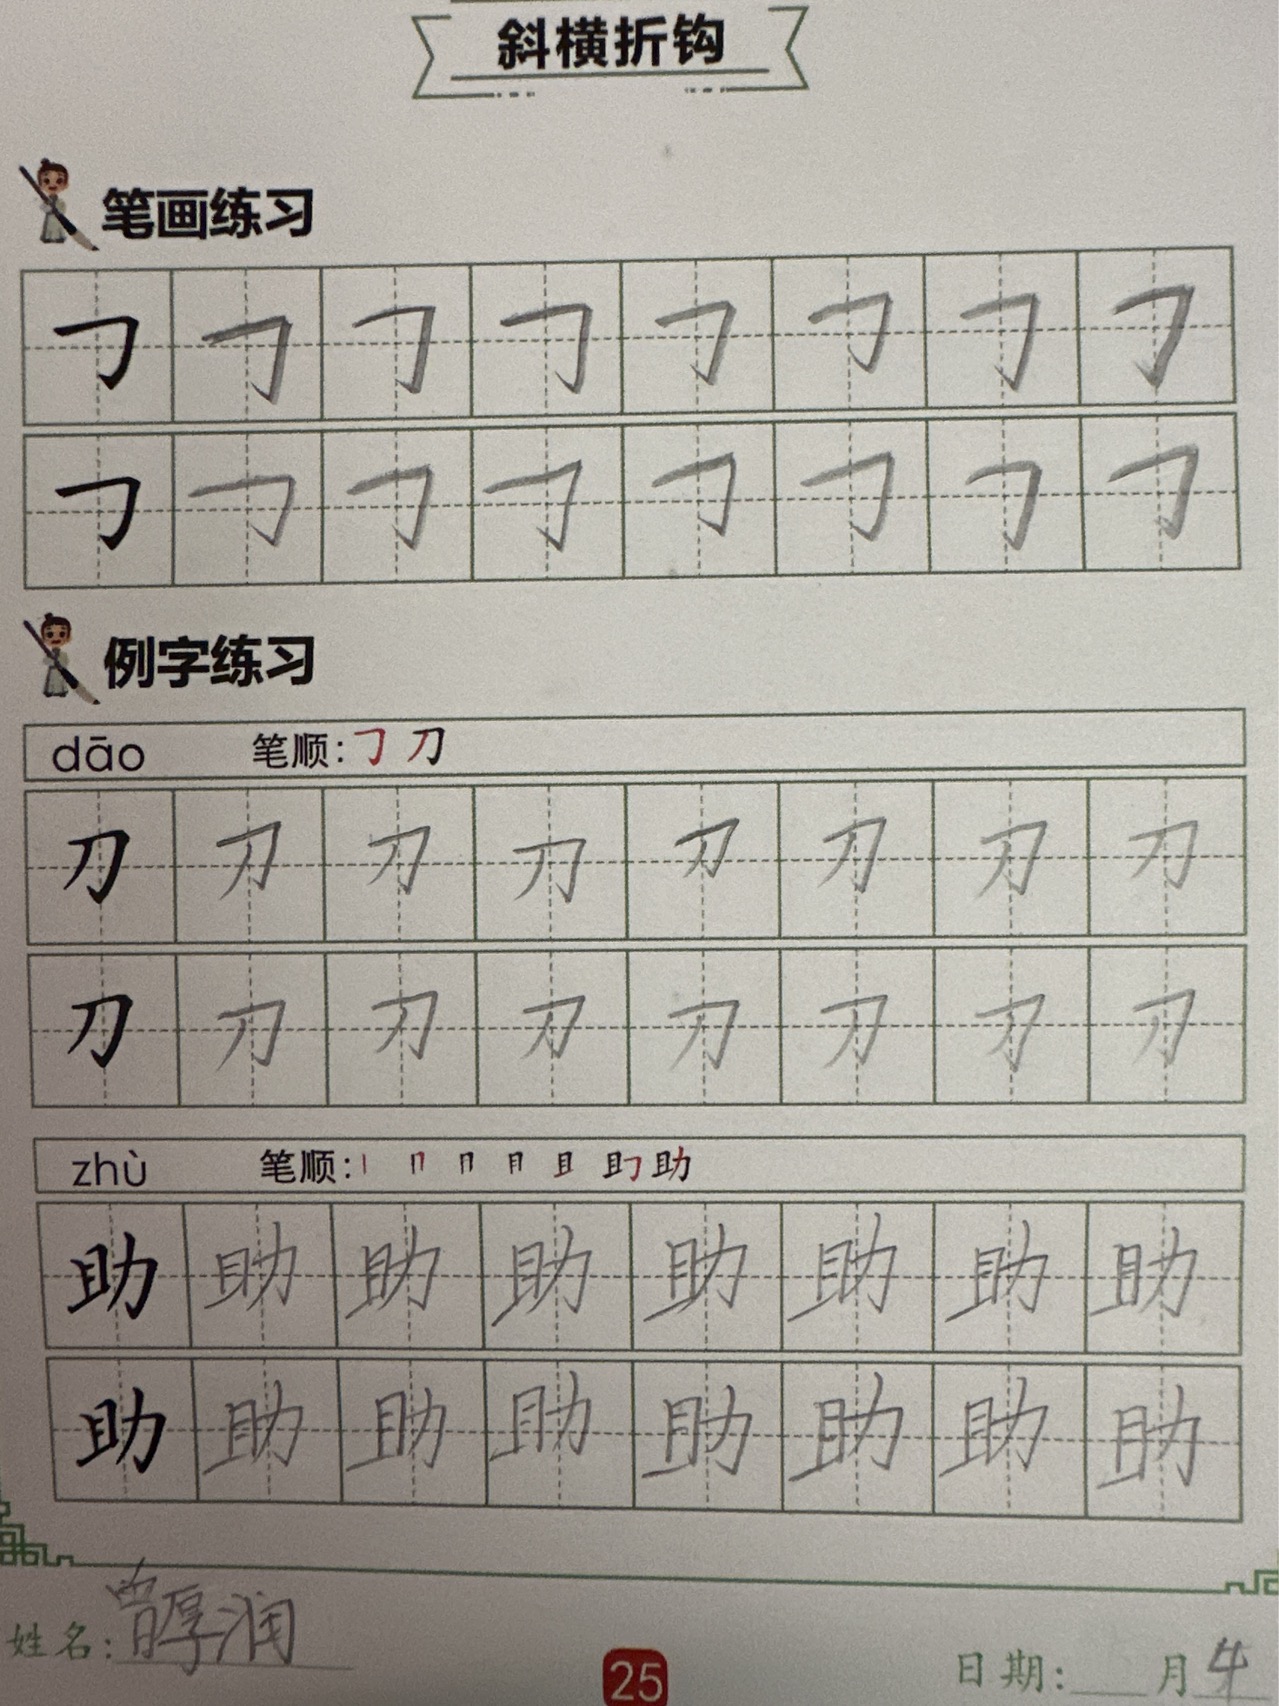 斜横折钩
笔画练习
㇆ ㇆ ㇆ ㇆ ㇆ ㇆ ㇆ ㇆
㇆ ㇆ ㇆ ㇆ ㇆ ㇆ ㇆ ㇆
例字练习
dāo 笔顺:㇆ 刀
刀 刀 刀 刀 刀 刀 刀 刀
刀 刀 刀 刀 刀 刀 刀 刀
zhù 笔顺:丨 冂 冂 月 且 助
助 助 助 助 助 助 助 助
助 助 助 助 助 助 助 助
姓名: 润
25
日期: 月